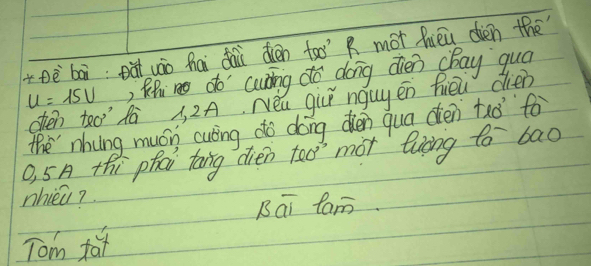 * Đề bài : Đặt vào hai đầu điện trở R một hiệu điện thế
U = 15V , khi đó cường độ dòng điện chạy qua
điện trở là 1,2A . Nếu giữ nguyên hiệu điện
thế nhưng muốn cường độ dòng điện qua điện trở là
0,5A thì phải tăng điện trở một lượng là bao
nhiêu?
Bài làm .
Tóm tắt